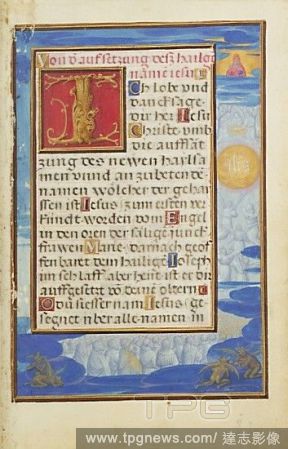 Von d' aufsetzung desz hailgē
namē iesus
Ich lobe vnd
danck sage
dir her Iesu
Christe vmb
die auffsa
tzung des newen hailsa
men vnnd an zubetendē
namen wölcher der gehai
ssen ist Iesus zum ersten ver
kündt worden vom Engel
in den oren der sälige junck
frawen Marie darnach geof
fenbaret dem hailigē Joseph
im schlaff aber heüt ist er dir
auffgesetzt vō deinē oltern
O du siesser nam Iesus ge
segnet v̈ber alle namen in
TPG
www.tpgnews.com/達志影像